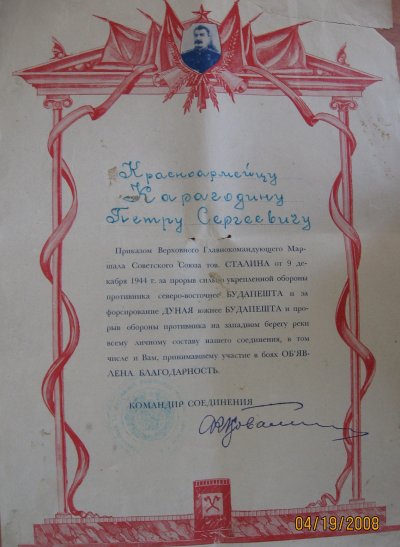 Красноармейцу
Карагодину
Петру Сергеевичу
Приказом Верховного Главнокомандующего Мар-
шала Советского Союза тов. СТАЛИНА от 9 де-
кабря 1944 г. за прорыв сильно укрепленной обороны
противника северо-восточнее БУДАПЕШТА и за
форсирование ДУНАЯ южнее БУДАПЕШТА и про-
рыв обороны противника на западном берегу реки
всему личному составу нашего соединения, в том
числе и Вам, принимавшему участие в боях ОБ'ЯВ-
ЛЕНА БЛАГОДАРНОСТЬ.
КОМАНДИР СОЕДИНЕНИЯ
04/19/2008